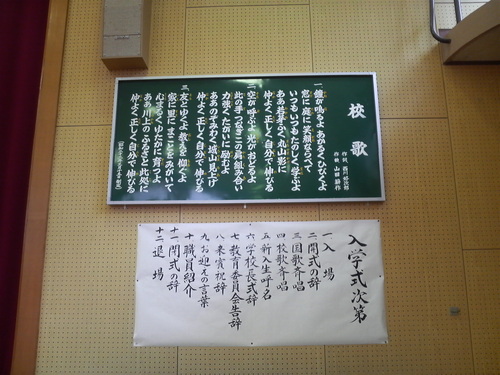 校歌
作詞 勝川
作曲 山田
一、鐘が鳴るよ あかるくひびくよ
窓に庭に 笑顔ならべて
いつも いつも たのしく学ぶよ
ああ 若芽ふく 丸山影に
仲よく 正しく 自分で伸びる
二、空が呼ぶよ 光がおどるよ
此の手つなぎ この肩組み合い
力強く たがいに励むよ
ああ のぞみわく 城山見上げ
仲よく 正しく 自分で伸びる
三、友とゆくよ 教えを仰ぐよ
家に里に まことをみがいて
心まるく ゆたかに育つよ
ああ 川上の ふるさと此処に
仲よく 正しく 自分で伸びる
入学式次第
一 入場
二 開式の辞
三 国歌斉唱
四 校歌斉唱
五 新入生呼名
六 学校長式辞
七 教育委員会告辞
八 来賓祝辞
九 お迎えの言葉
十 職員紹介
十一 閉式の辞
十二 退場